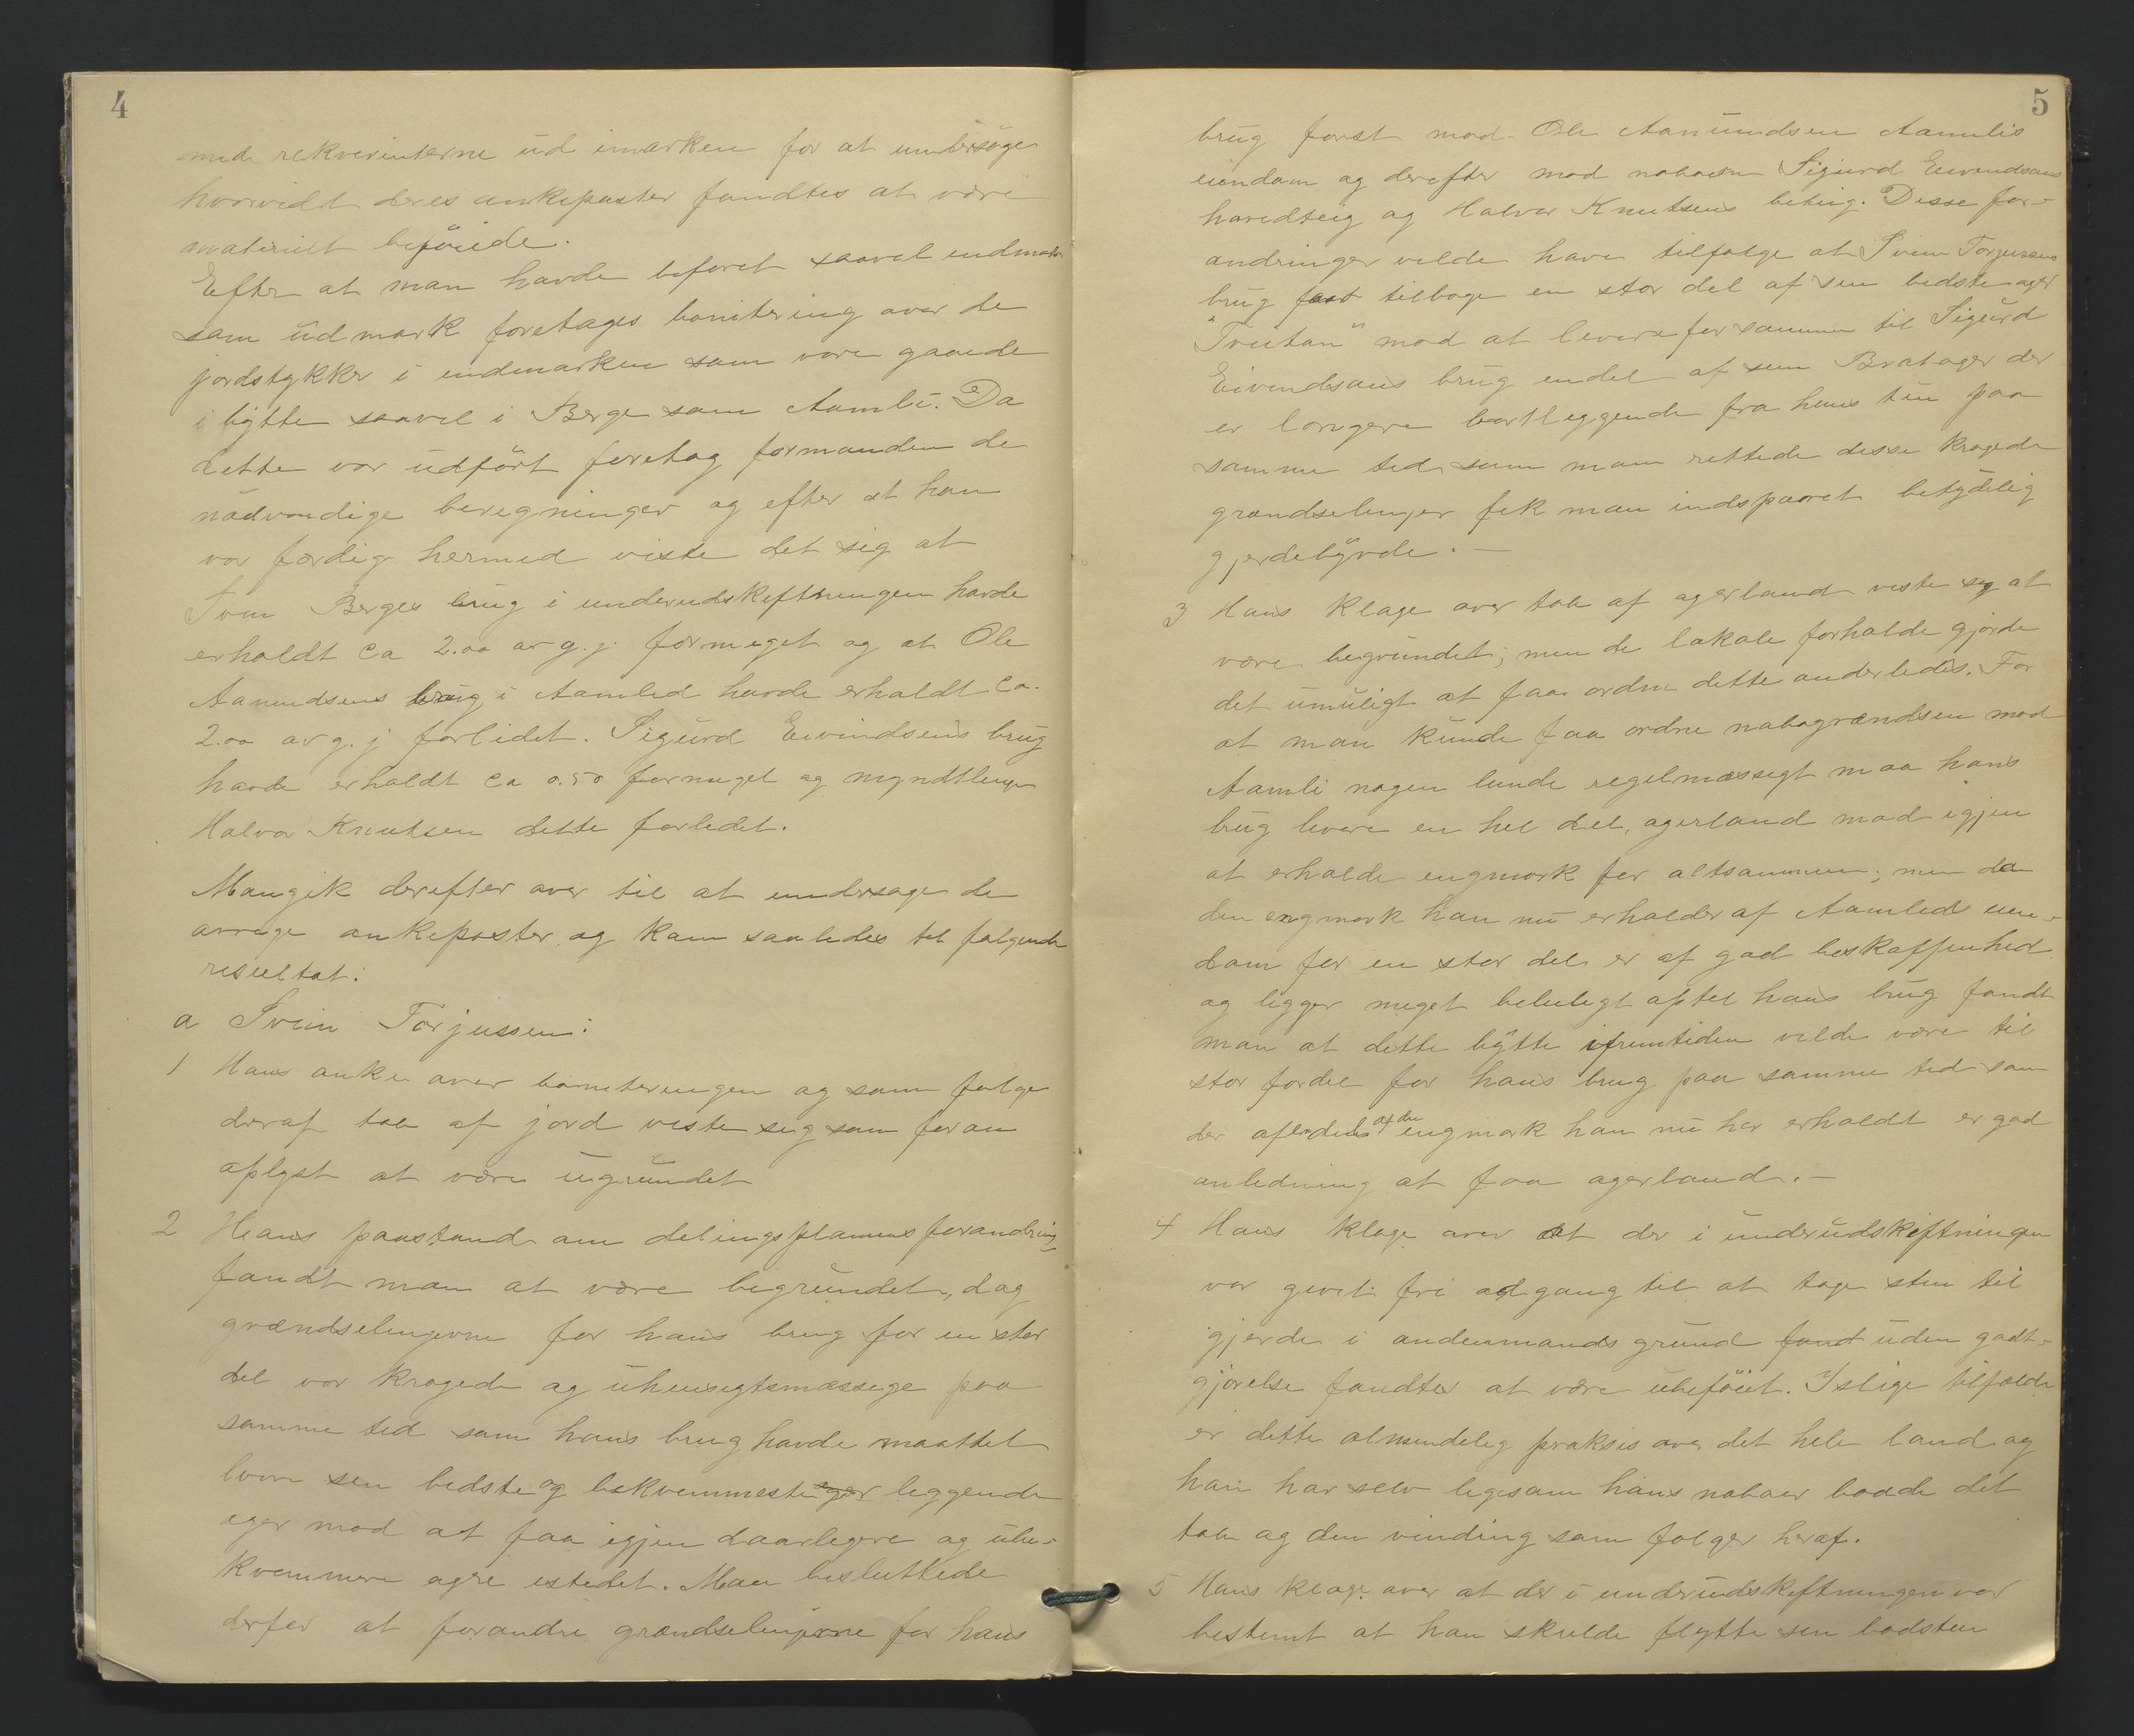 4
med rekvirenterne ud imarken for at undersøge
hvorvidt deres ankeposter fandtes at være
materielt beføiede.
Efter at man havde beforet saavel indmark
som udmark foretages bonitering over de
jordstykker i indmarken som vare gaaede
i bytte saavel i Berge som Aamli. Da
dette var udført foretog formanden de
nødvendige beregninger og efter at han
var færdig hermed viste det sig at
Svein Berges brug i underudskiftningen havde
erholdt ca 2.00 ar g. j. formeget og at Ole
Aanundsens brug i Aamlid havde erholdt ca.
2.00 ar g. j forlidet. Sigurd Eivindsens brug
havde erholdt ca 0.50 formeget og myndtling
Halvor Knutsen dette forlidet.
Mangik derefter over til at undersøge de
øvrige ankeposter og kom saaledes til følgende
resultat:
a Svein Torjussen:
1 Hans anke over boniteringen og som følge
deraf tab af jord viste sig som foran
oplyst at være ugrundet
2 Hans paastand om delingsplanens forandring
fandt man at være begrundet, dog
grændselinjerne for hans brug for en stor
del var krogede og uhensigtsmæssige paa
samme tid som hans brug havde maattet
levere sin bedste og bekvemmeste ager liggende
ager mod at faa igjen daarligere og ube-
kvemmere agre istedet. Man besluttede
derfor at forandre grændselinjerne for hans
5
brug først mod Ole Aanundsen Aamlis
eiendom og derefter mod naboen Sigurd Eivindsens
havedteig og Halvor Knutsens beting. Disse for-
andringer vilde have tilfølge at Svein Torjussens
brug faar tilbage en stor del af sin bedste ager
"Tveitan" mod at levere for samme til Sigurd
Eivindsens brug endel af sin Bratager der
er længere bortliggende fra hans tun paa
samme tid som man rettede disse krogede
grændselinjer fik man indsparet betydelig
gjerdebyrde. —
3 Hans klage over tab af agerland viste sig at
være begrundet; men de lokale forholde gjorde
det umuligt at faa ordne dette anderledes. For
at man kunde faa ordne nabogrændsen mod
Aamli nogen lunde regelmæssigt maa hans
brug levere en hel del, agerland mod igjen
at erholde engmark for altsammen; men da
den engmark han nu erholder af Aamlids eien-
dom for en stor del er af god beskaffenhed
og ligger meget beleiligt optil hans brug fandt
man at dette bytte ifremtiden vilde være til
stor fordel for hans brug paa samme tid som
der afendel af den engmark han nu har erholdt er god
anledning at faa agerland. —
4 Hans klage over at der i underudskiftningen
var givet fri adgang til at tage sten til
gjerde i andenmands grund fandt uden godt-
gjørelse fandtes at være ubeføiet. I slige tilfælde
er dette almindelig praksis over det hele land og
han har selv ligesom hans naboer baade det
tab og den vinding som følger heraf.
5 Hans klage over at der i underudskiftningen var
bestemt at han skulde flytte sin badsten